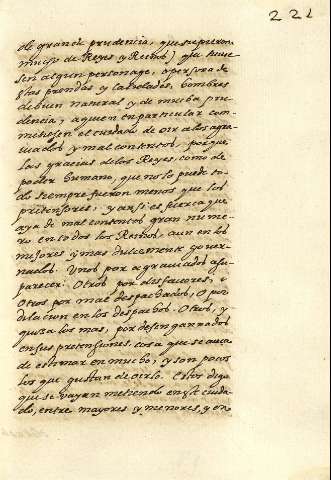 221
de grande prudencia, que supieron
mucho de Reyes y Reinos, que huvie
sen algun personage, o persona de
estas prendas y cavales. Hombres
de buen natural y de mucha pru
dencia, a quien en particular com
metiesen el cuidado de oir a los agra
viados y mal contentos, porque
las gracias de los Reyes, como de
poder humano, que no lo puede to
do siempre fueron menos que los
pretensores: y ansi es fuerça que
aya de mal contentos gran nume
ro en todos los Reinos. aun en los
mejores y mas dulcemente gover
nados. Unos por agraviados a su
parecer. Otros por disfavores,
Otros por mal despachados, O por
dilacion en los despachos. Otros, y
quiza los mas, por desengañados
en sus pretensiones, cosa que se avia
de estimar en mucho, y son pocos
los que gustan de oirlo. Estos digo
que se vayan metiendo en este cuida
do, entre mayores y menores, y en